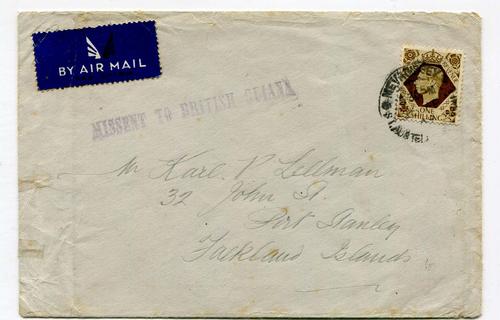 BY AIR MAIL
ONE
SHILLING
ST. AUSTELL
MISSENT TO BRITISH GUIANA
Mr Karl. V Lellman
32 John St.
Port Stanley
Falkland Islands